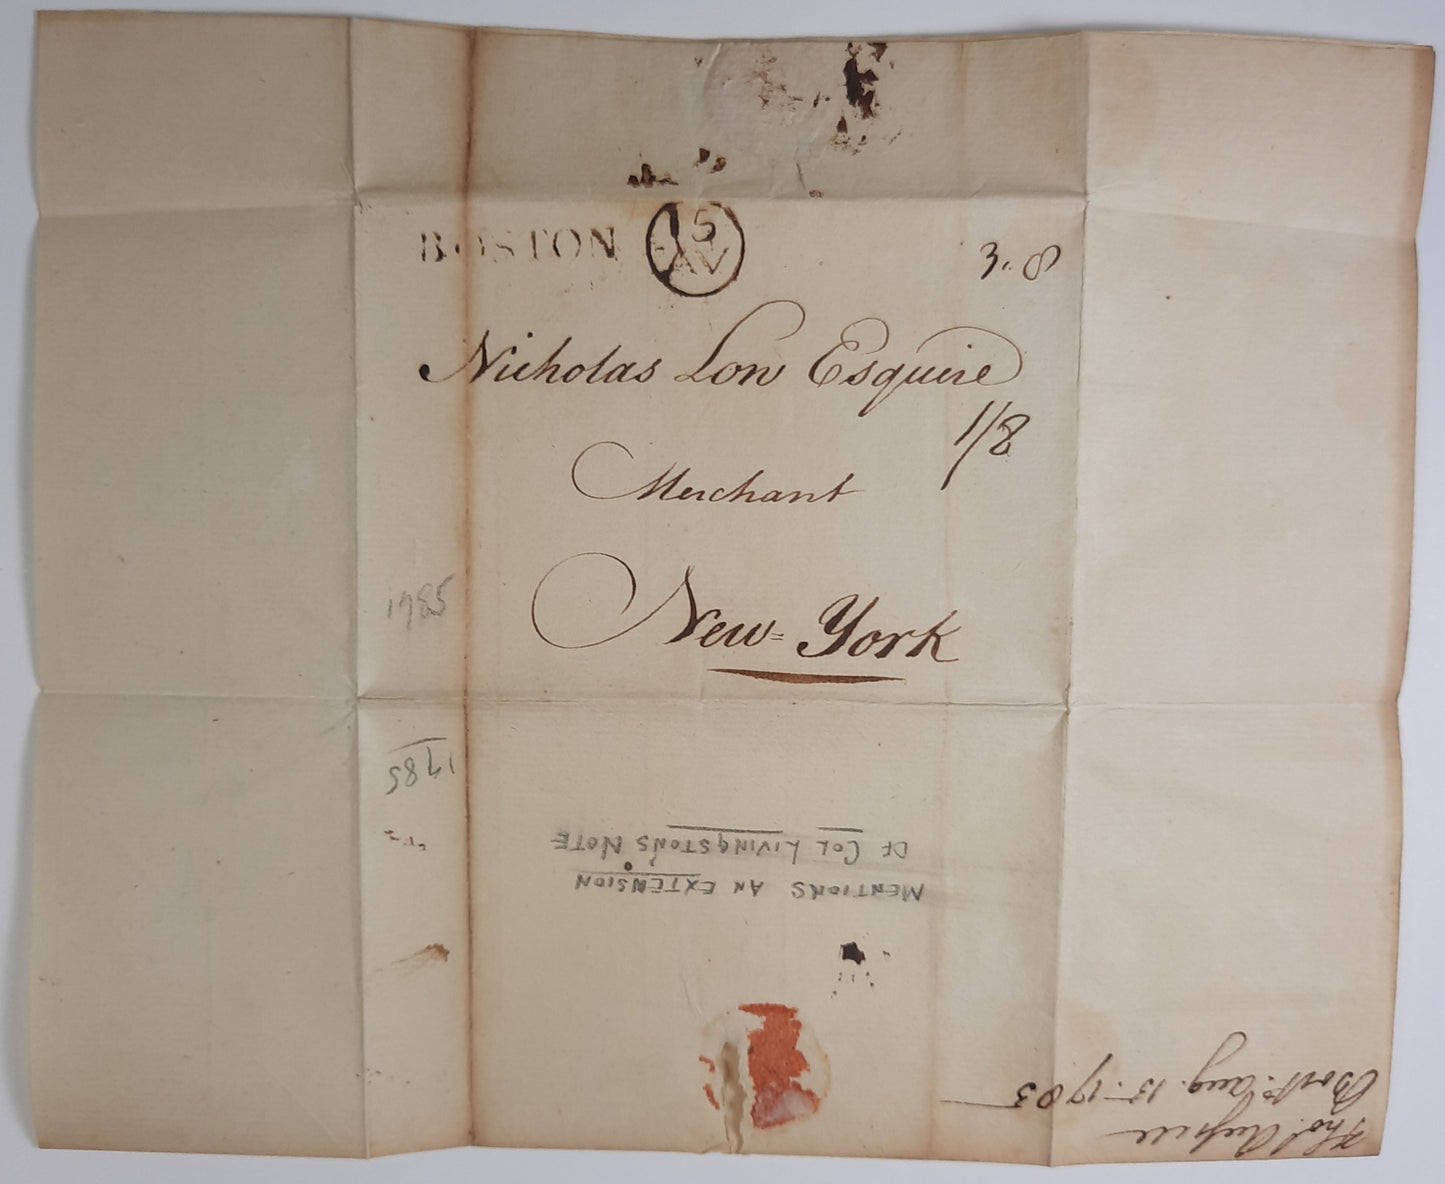 BOSTON 15 AV
3. 8
Nicholas Low Esquire
1/8
Merchant
New=York
1785
1785
MENTIONS AN EXTENSION
OF COL LIVINGSTON'S NOTE
Thos.
Bost. Aug. 15. 1785